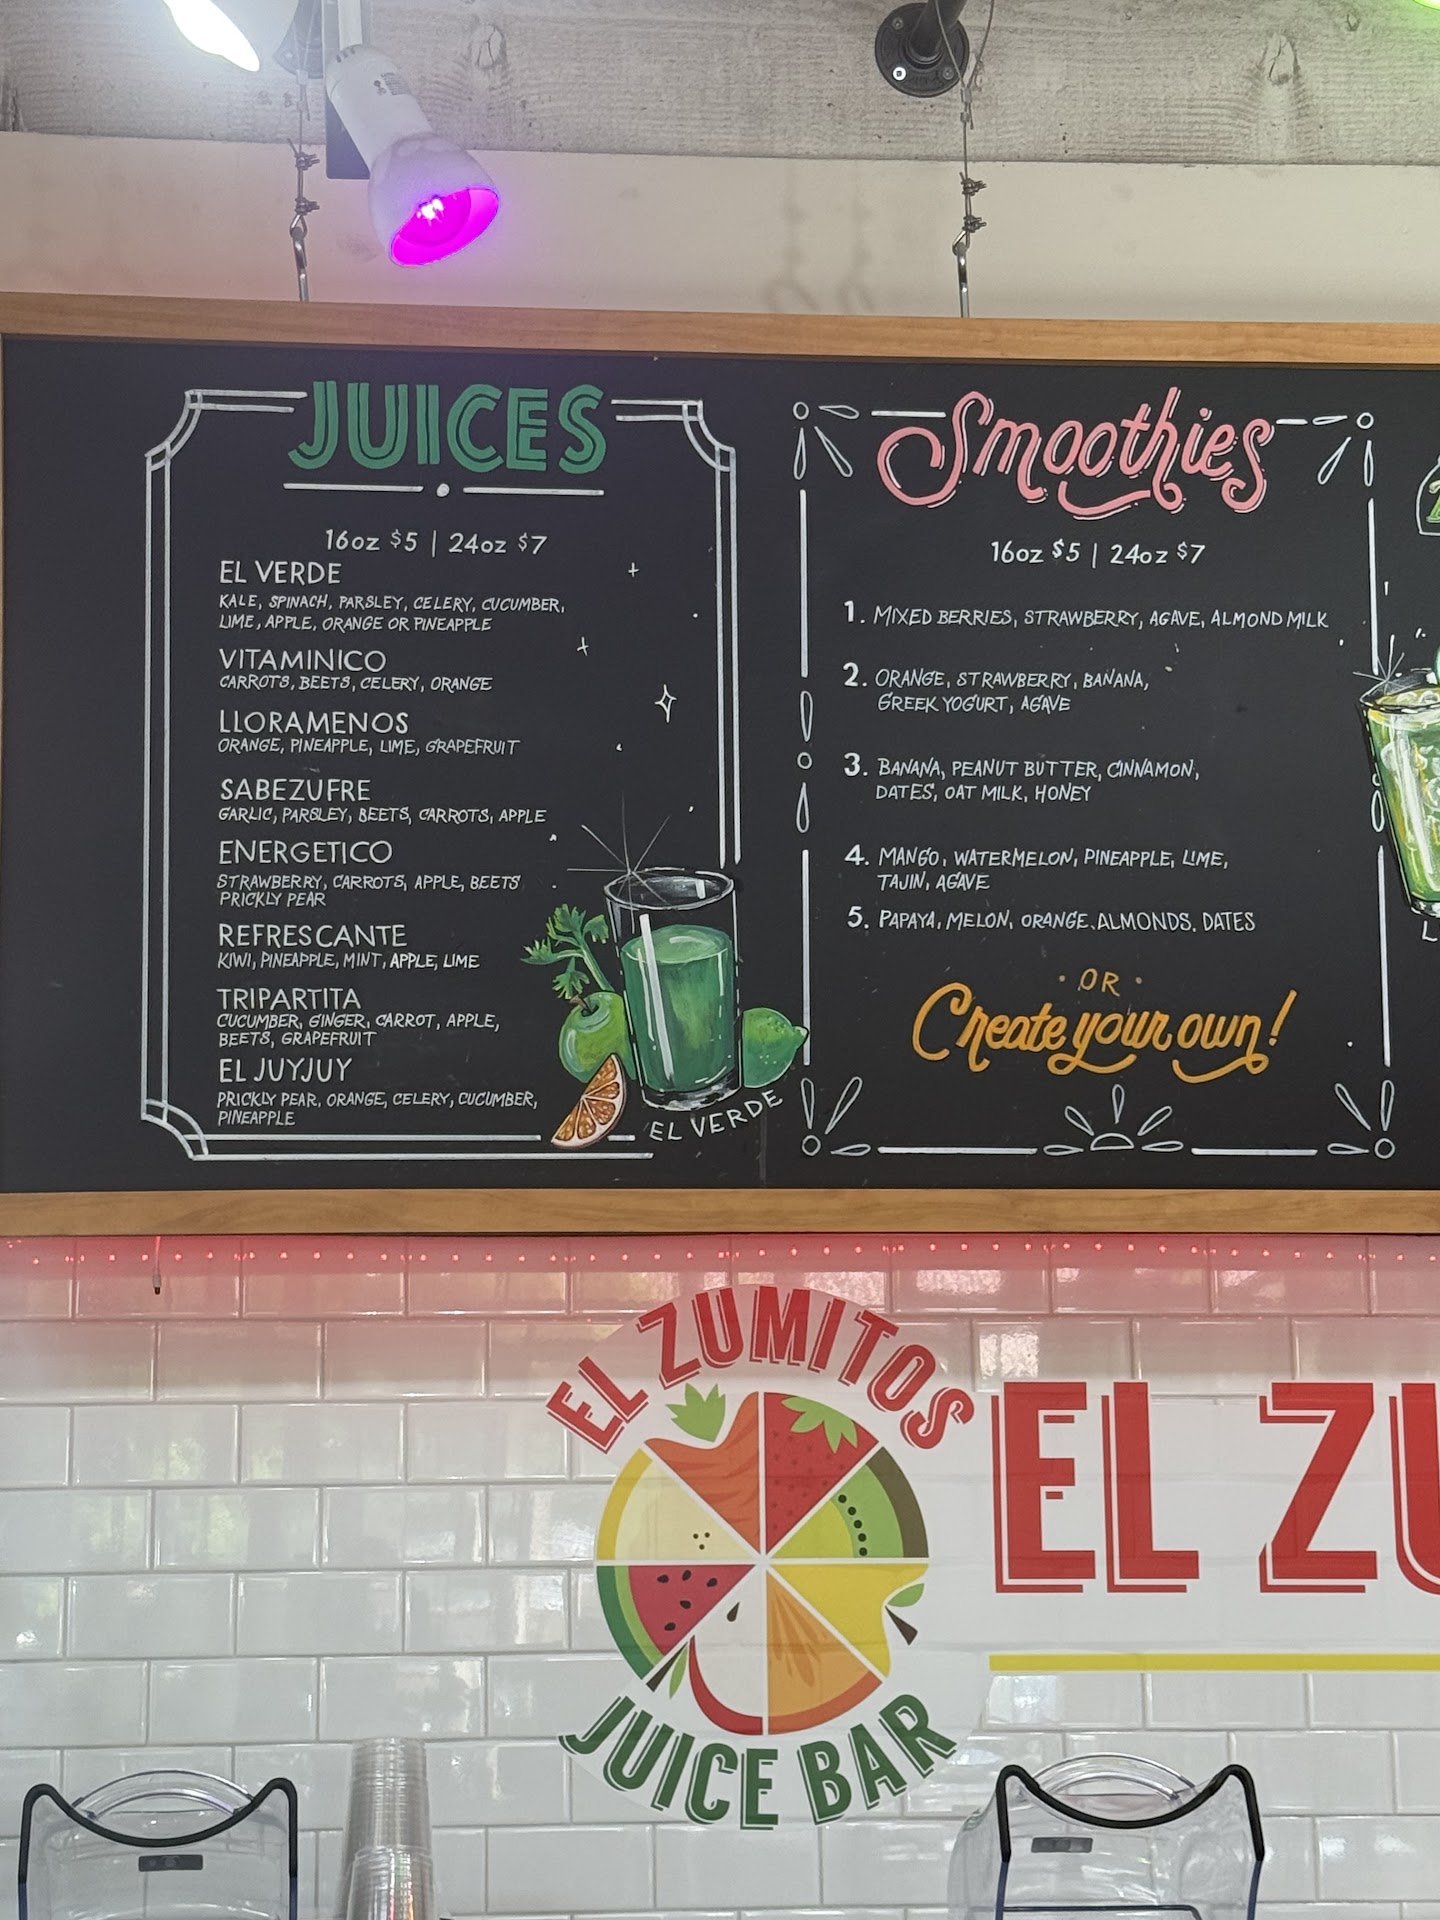 JUICES
16oz $5 | 24oz $7
EL VERDE
KALE, SPINACH, PARSLEY, CELERY, CUCUMBER,
LIME, APPLE, ORANGE OR PINEAPPLE
VITAMINICO
CARROTS, BEETS, CELERY, ORANGE
LLORAMENOS
ORANGE, PINEAPPLE, LIME, GRAPEFRUIT
SABEZUFRE
GARLIC, PARSLEY, BEETS, CARROTS, APPLE
ENERGETICO
STRAWBERRY, CARROTS, APPLE, BEETS
PRICKLY PEAR
REFRESCANTE
KIWI, PINEAPPLE, MINT, APPLE, LIME
TRIPARTITA
CUCUMBER, GINGER, CARROT, APPLE,
BEETS, GRAPEFRUIT
EL JUYJUY
PRICKLY PEAR, ORANGE, CELERY, CUCUMBER,
PINEAPPLE
EL VERDE
Smoothies
16oz $5 | 24oz $7
1. MIXED BERRIES, STRAWBERRY, AGAVE, ALMOND MILK
2. ORANGE, STRAWBERRY, BANANA,
GREEK YOGURT, AGAVE
3. BANANA, PEANUT BUTTER, CINNAMON,
DATES, OAT MILK, HONEY
4. MANGO, WATERMELON, PINEAPPLE, LIME,
TAJIN, AGAVE
5. PAPAYA, MELON, ORANGE, ALMONDS, DATES
· OR ·
Create your own!
L
EL ZUMITOS
JUICE BAR
EL ZU